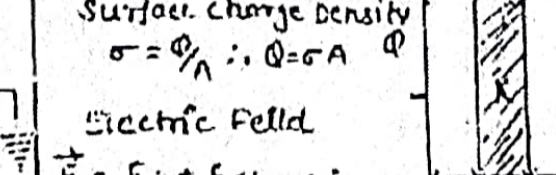 Surface Charge Density
σ = Q/A ∴ Q=σA Q
Electric Feild